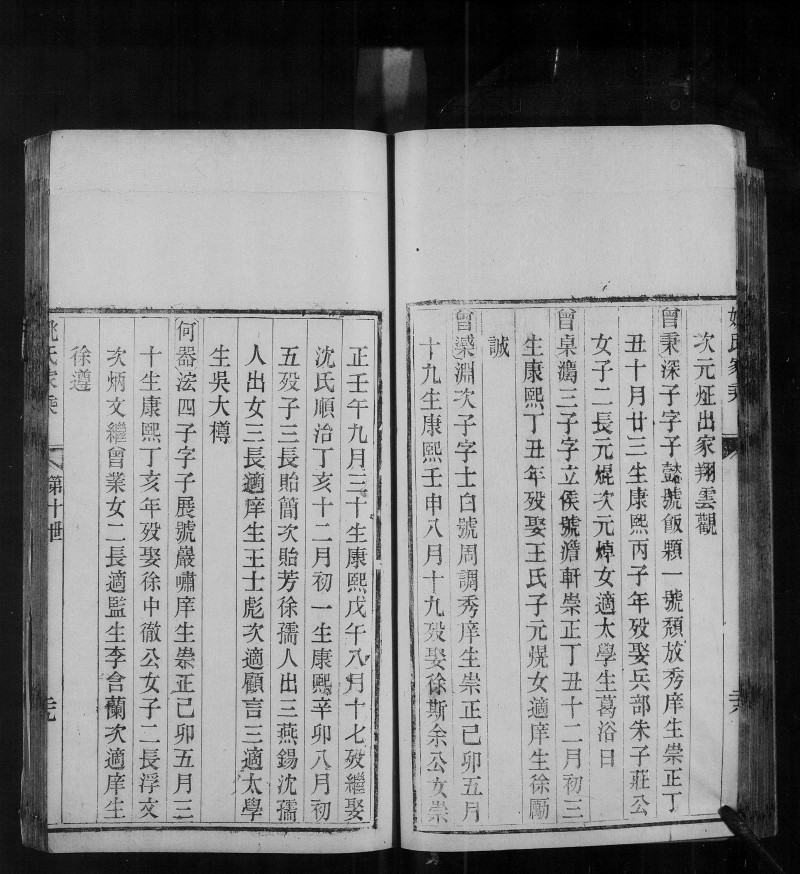 姚氏家乘
次元炡出家翔雲觀
曾秉深子字子懿號飯顆一號頽放秀庠生崇正丁
丑十月廿三生康熙丙子年歿娶兵部朱子莊公
女子二長元焜次元焯女適太學生葛浴日
曾桌漹三子字立侯號澹軒崇正丁丑十二月初三
生康熙丁丑年歿娶王氏子元熀女適庠生徐勵
誠
曾櫐淵次子字士白號周調秀庠生崇正己卯五月
十九生康熙壬申八月十九歿娶徐斯余公女崇
正壬午九月三十生康熙戊午八月十七歿繼娶
沈氏順治丁亥十二月初一生康熙辛卯八月初
五歿子三長貽簡次貽芳徐孺人出三燕錫沈孺
人出女三長適庠生王士彪次適顧言三適太學
生吳大樽
何器浤四子字子展號嚴嘯庠生崇正己卯五月三
十生康熙丁亥年歿娶徐中徹公女子二長浮文
次炳文繼曾業女二長適監生李含蘭次適庠生
徐遵
姚氏家乘
第十世